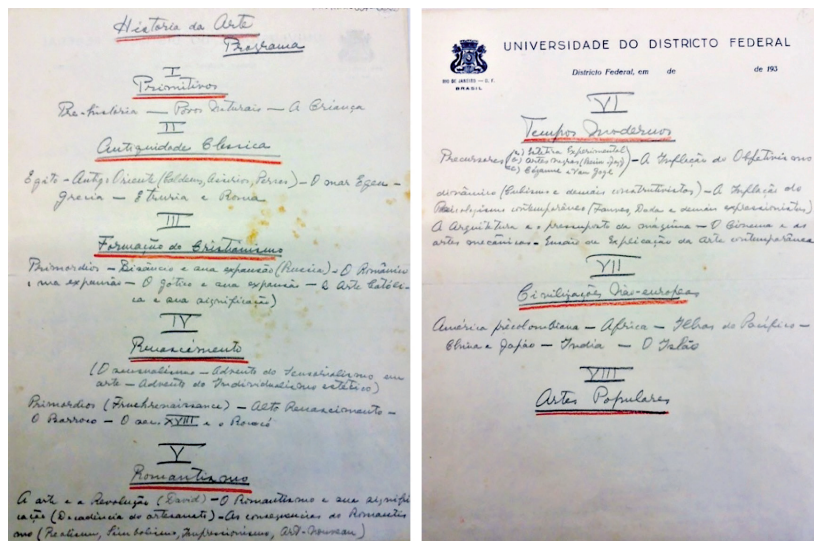 Historia da Arte
Programa
I
Primitivos
Pre-historia — Povos Naturais — A Criança
II
Antiguidade Clássica
Egito — Antigo Oriente (Caldeus, Assirios, Persas) — O mar Egeu —
Grecia — Etruria e Roma
III
Formação do Cristianismo
Primordios — Bisâncio e sua expansão (Russia) — O Românico
e sua expansão — O gotico e sua expansão — A Arte Católi-
ca e sua significação)
IV
Renascimento
(O sensualismo — Advento do Sensorialismo em
arte — Advento do Individualismo estético)
Primordios (Fruehrenaissance) — Alto Renascimento —
O Barroco — O sec. XVIII e o Rococó
V
Romantismo
A arte e a Revolução (David) — O Romantismo e sua signifi-
cação (Decadência do artesanato) — As consequências do Romantis
mo (Realismo, Simbolismo, Impressionismo, Art-Nouveau)
UNIVERSIDADE DO DISTRICTO FEDERAL
RIO DE JANEIRO — D. F.
BRASIL
Districto Federal, em de de 193
VI
Tempos Modernos
a) Estetica Experimental
Precursores b) Artes negras — A Inflação do Objetivismo
c) Cézanne e Van Gogh
dinâmico (Cubismo e demais construtivistas) — A Inflação do
Psicologismo contemporâneo (Fauves, Dada e demais expressionistas)
A Arquitetura e o pressuposto da máquina — O Cinema e as
artes mecânicas — Ensaio de Explicação da Arte contemporânea
VII
Civilizações Não-européas
América précolombiana — Africa — Ilhas do Pacífico —
China e Japão — India — O Islão
VIII
Artes Populares